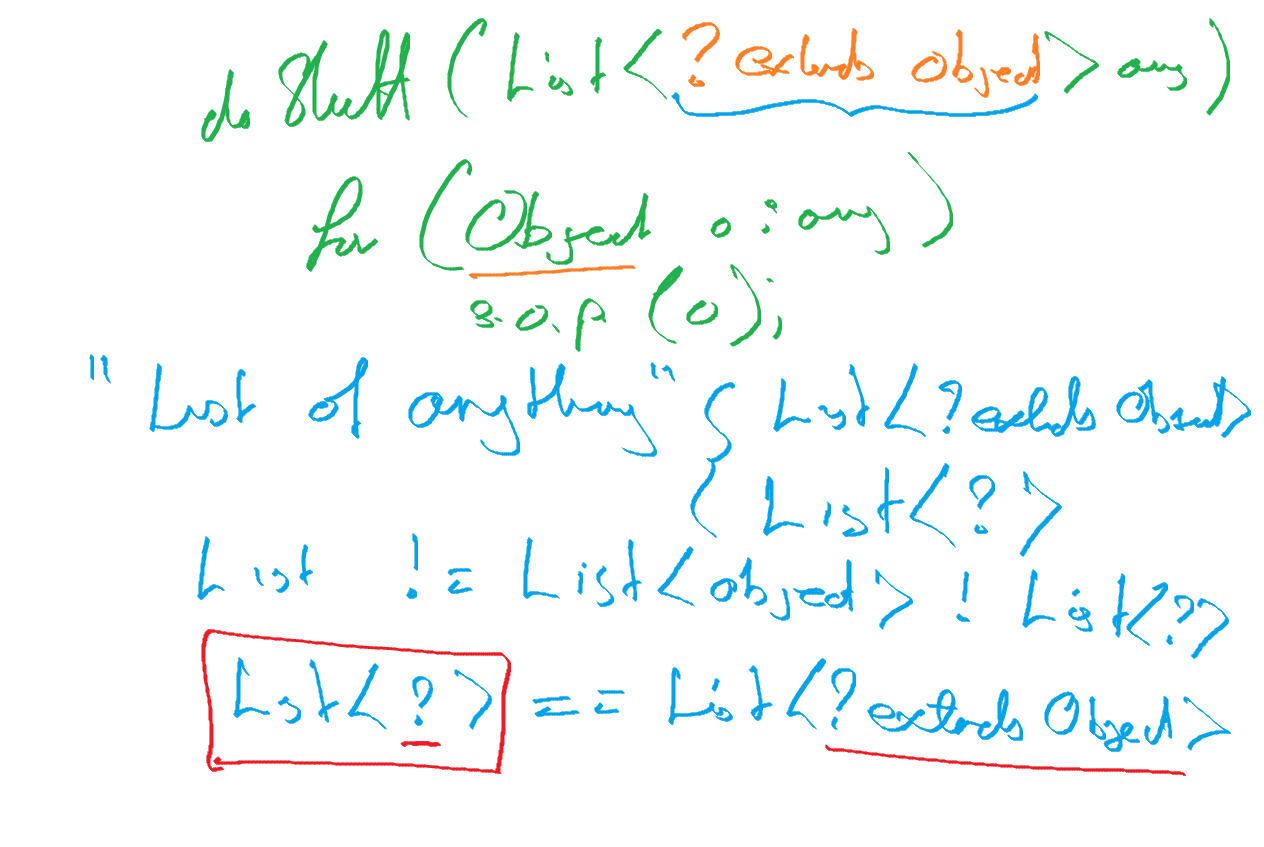 do Stuff (List<? extends Object> any)
for (Object o : any)
s.o.p (o);
"List of anything" { List<? extends Object>
List<?>
List != List<object> ! List<?>
List<?> == List<? extends Object>